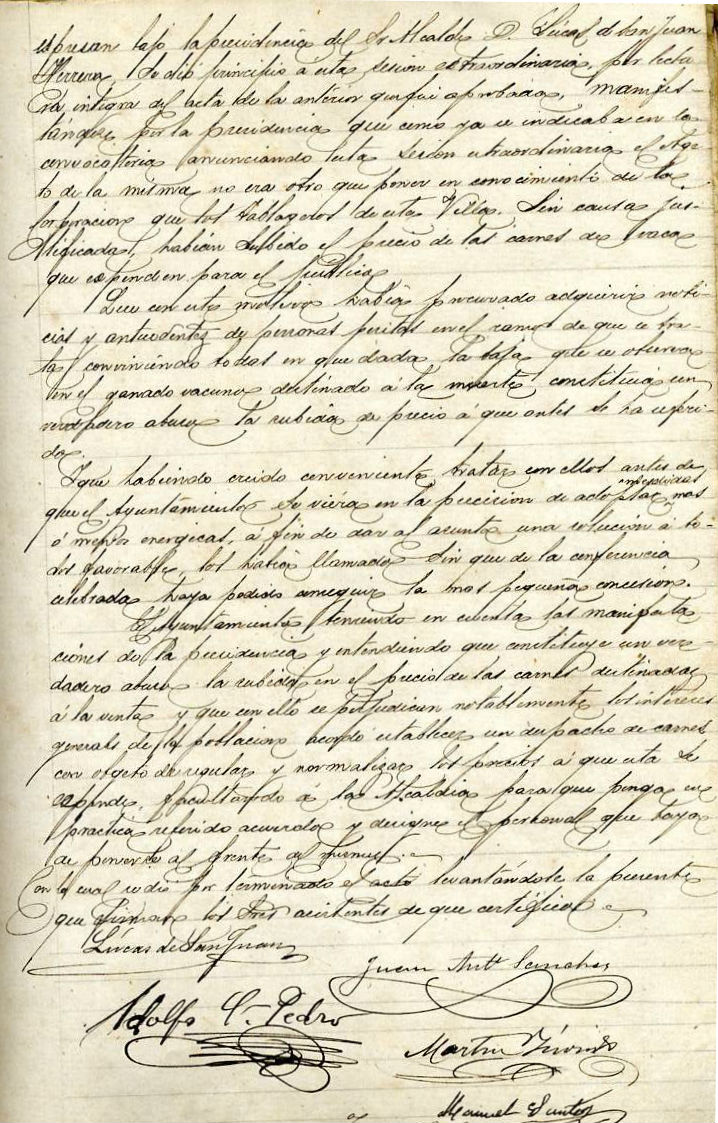 espresan bajo la presidencia del Sr Alcalde D. Lúcas de San Juan
Herrera, se dió principio á esta sesion extraordinaria, por lectu
ra integra del acta de la anterior que fué aprobada, manifes-
tándose por la presidencia que como ya se indicaba en la
convocatoria anunciando esta sesion extraordinaria el obje-
to de la misma no era otro que poner en conocimiento de la
Corporacion que los tablageros de esta Villa, sin causa jus-
tificada, habian subido el precio de las carnes de vaca
que espenden para el público
Que con este motivo habia procurado adquirir noti-
cias y antecedentes de personas peritas en el ramo de que se tra-
ta, conviniendo todas en que dada la baja que se observa
en el ganado vacuno destinado á la muerte constituia un
verdadero abuso la subida de precio á que antes se ha referi-
do.
Y que habiendo creido conveniente tratar con ellos antes de
que el Ayuntamiento se viera en la precision de adoptar medidas mas
ó menos energicas, á fin de dar al asunto una solucion á to-
dos favorable, los habia llamado sin que de la conferencia
celebrada haya podido conseguir la mas pequeña concesion.
El Ayuntamiento teniendo en cuenta las manifesta
ciones de la presidencia y entendiendo que constituye un ver-
dadero abuso la subida en el precio de las carnes destinadas
á la venta y que con ello se perjudican notablemente los intereses
generales de la poblacion acordó establecer un despacho de carnes
con objeto de regular y normalizar los precios á que esta se
espende, facultando á la Alcaldia para que ponga en
practica referido acuerdo y designe el personal que haya
de ponerse al frente del mismo.
Con lo cual se dió por terminado el acto levantándose la presente
que firman los Sres asistentes de que certifico
Lúcas de San Juan
Juan Antº Sanchez
Adolfo C. Pedro
Martin
Manuel Santos